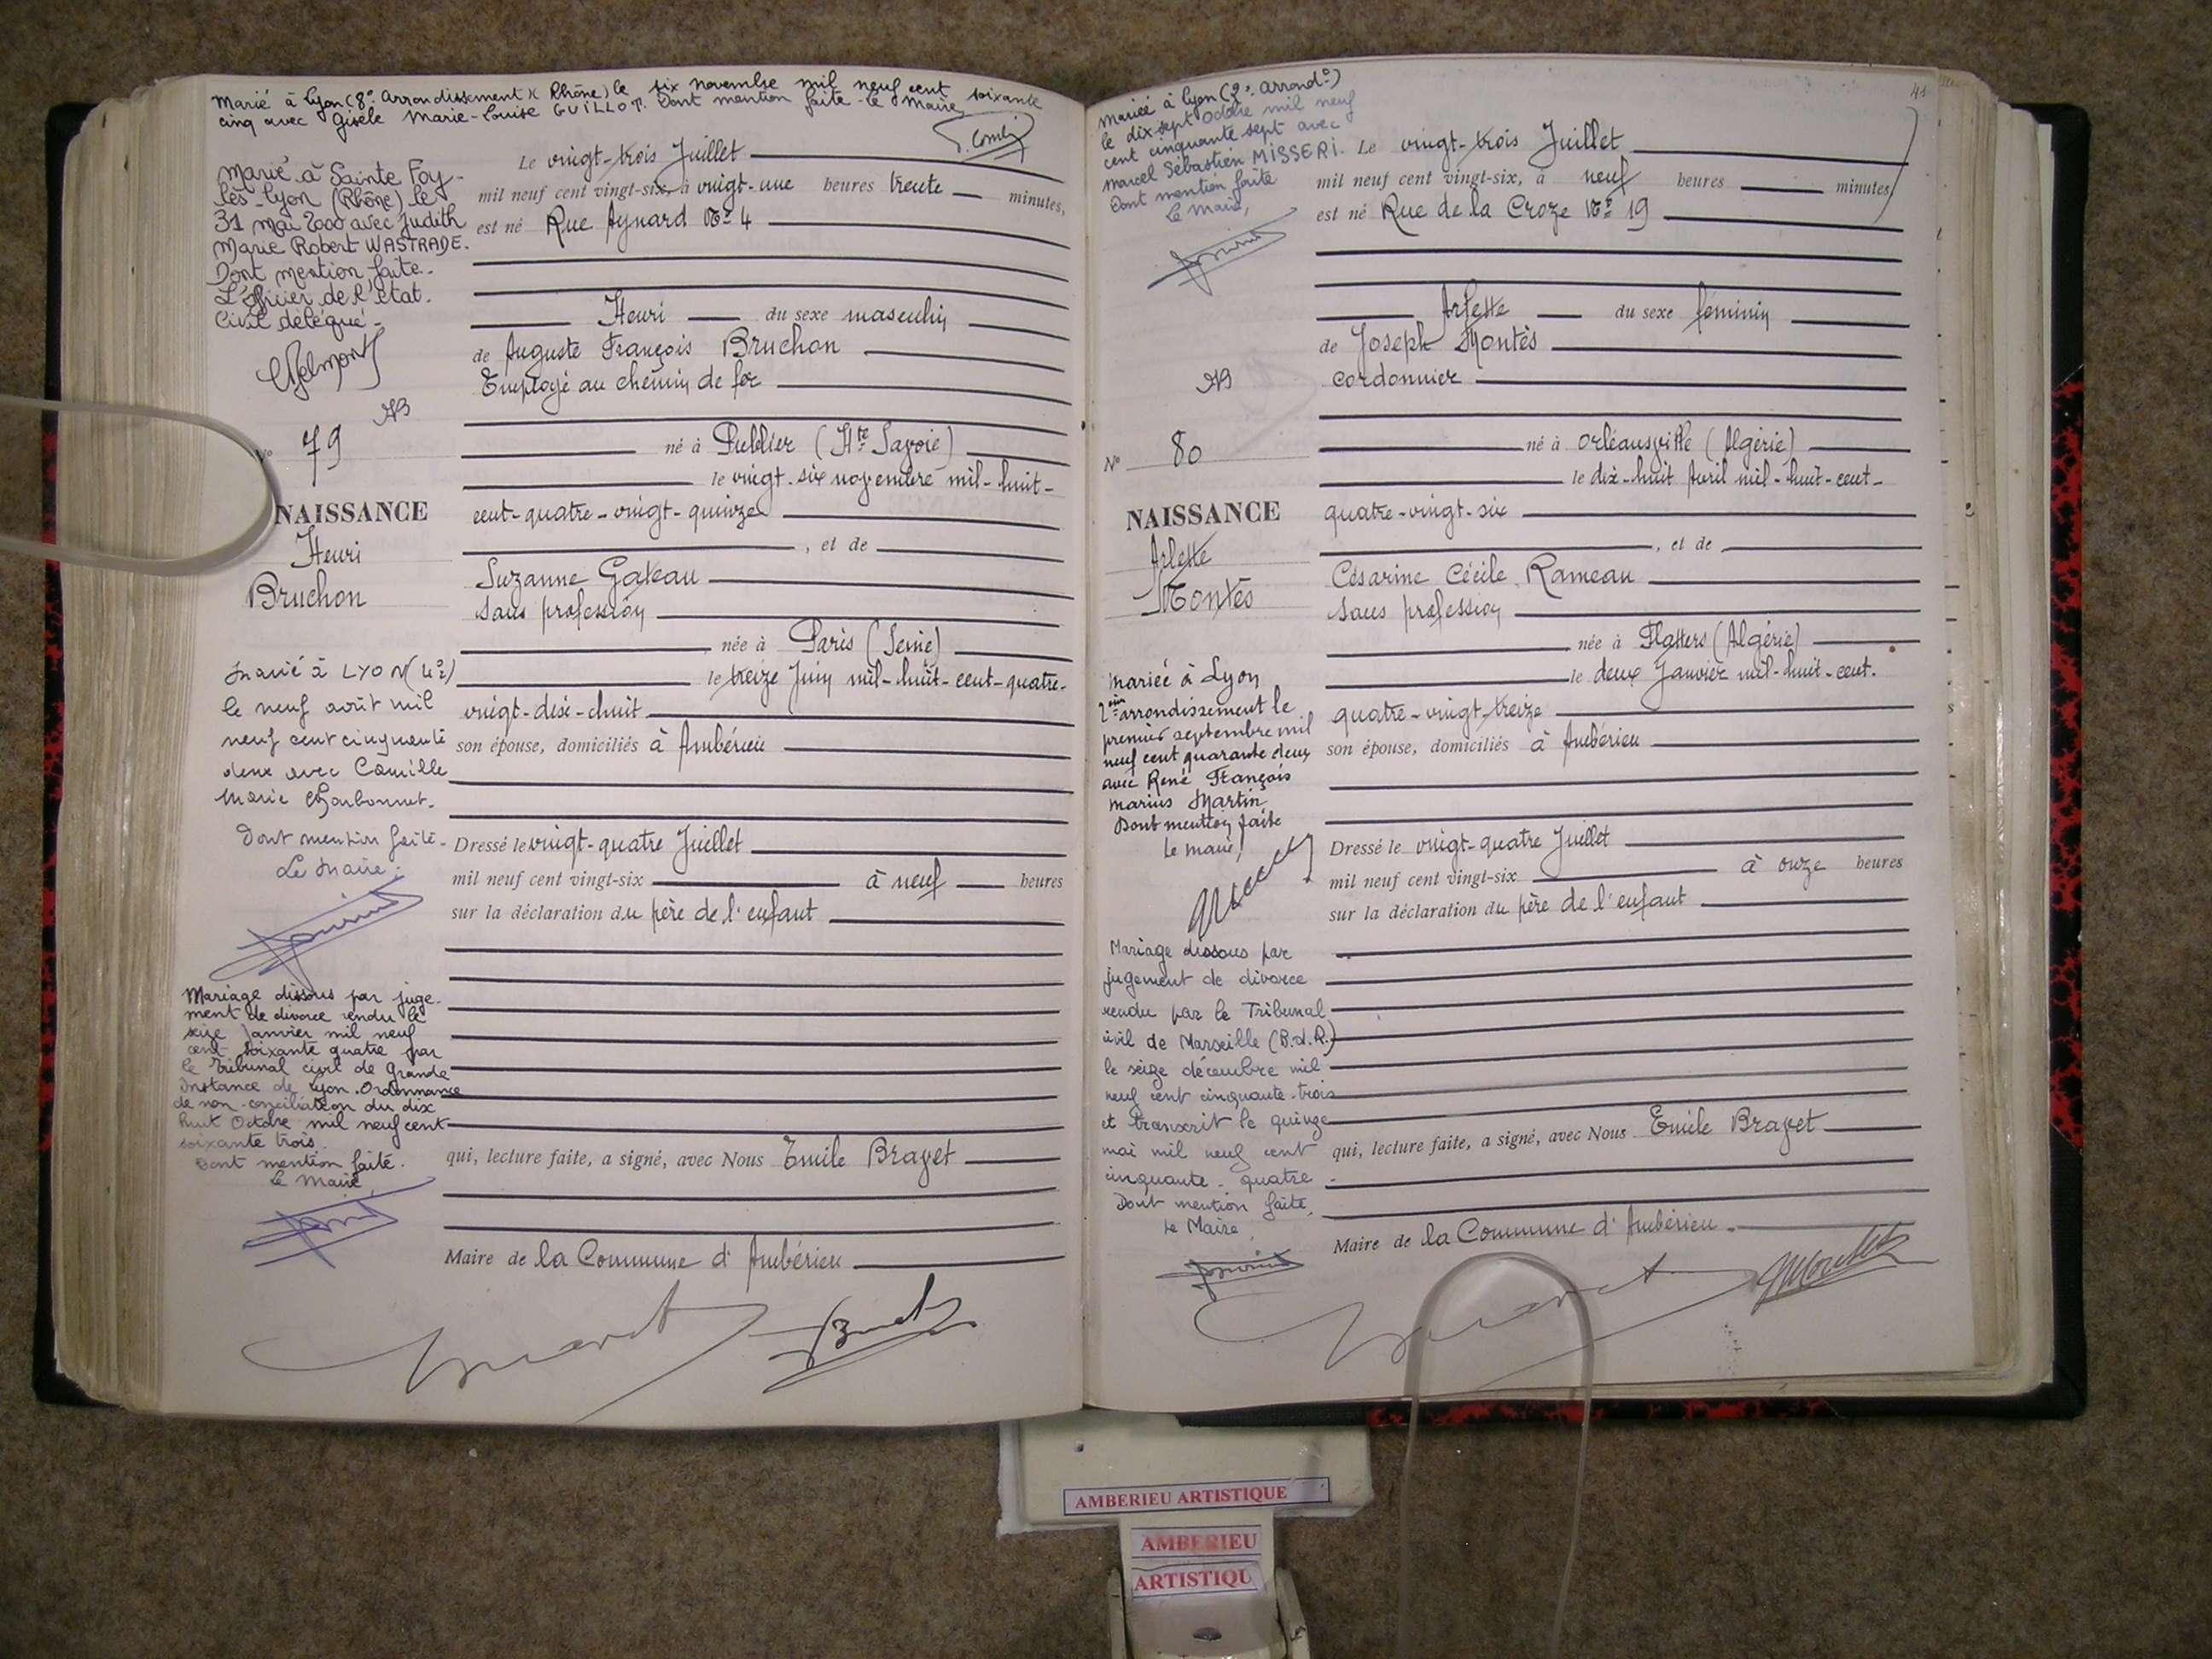 Marié à Lyon (8e Arrondissement)(Rhône) le six novembre mil neuf cent soixante
cinq avec Gisèle Marie-Louise GUILLOT. Dont mention faite - le Maire
Marié à Sainte Foy-
lès-Lyon (Rhône) le
31 mai 2000 avec Judith
Marie Robert WASTRADE.
Dont mention faite.
L'officier de l'état.
Civil délégué.
N° 79
NAISSANCE
Henri
Bruchon
Marié à LYON (4e)
le neuf août mil
neuf cent cinquante
deux avec Camille
Marie Charbonnet.
Dont mention faite.
Le Maire:
Mariage dissous par juge-
ment de divorce rendu le
seize Janvier mil neuf
cent soixante quatre par
le Tribunal civil de Grande
Instance de Lyon. Ordonnance
de non-conciliation du dix
huit Octobre mil neuf cent
soixante trois.
Dont mention faite.
Le Maire
Le vingt-trois Juillet
mil neuf cent vingt-six, à vingt-une heures trente minutes,
est né Rue Aynard No 4
Henri du sexe masculin
de Auguste François Bruchon
Employé au chemin de fer
né à Publier (Hte Savoie)
le vingt-six novembre mil-huit-
cent-quatre-vingt-quinze
, et de
Suzanne Gateau
Sans profession
née à Paris (Seine)
le treize Juin mil-huit-cent-quatre-
vingt-dix-huit
son épouse, domiciliés à Ambérieu
Dressé le vingt-quatre Juillet
mil neuf cent vingt-six à neuf heures
sur la déclaration du père de l'enfant
qui, lecture faite, a signé, avec Nous Emile Bravet
Maire de la Commune d'Ambérieu
41
Mariée à Lyon (2e. Arrondt)
le dix sept Octobre mil neuf
cent cinquante sept avec
Marcel Sébastien MISSERI.
Dont mention faite
Le Maire,
N° 80
NAISSANCE
Arlette
Montès
Mariée à Lyon
2ème arrondissement le
premier septembre mil
neuf cent quarante deux
avec René François
Marius Martin
Dont mention faite
Le Maire,
Mariage dissous par
jugement de divorce
rendu par le Tribunal
civil de Marseille (B.d.R.)
le seize décembre mil
neuf cent cinquante-trois
et transcrit le quinze
mai mil neuf cent
cinquante-quatre.
Dont mention faite,
Le Maire,
Le vingt-trois Juillet
mil neuf cent vingt-six, à neuf heures minutes,
est né Rue de la Croze No 19
Arlette du sexe féminin
de Joseph Montès
cordonnier
né à Orléansville (Algérie)
le dix-huit Avril mil-huit-cent-
quatre-vingt-six
, et de
Césarine Cécile Rameau
sans profession
née à Flatters (Algérie)
le deux Janvier mil-huit-cent.
quatre-vingt-treize
son épouse, domiciliés à Ambérieu
Dressé le vingt-quatre Juillet
mil neuf cent vingt-six à onze heures
sur la déclaration du père de l'enfant
qui, lecture faite, a signé, avec Nous Emile Bravet
Maire de la Commune d'Ambérieu.
AMBERIEU ARTISTIQUE
AMBERIEU
ARTISTIQU